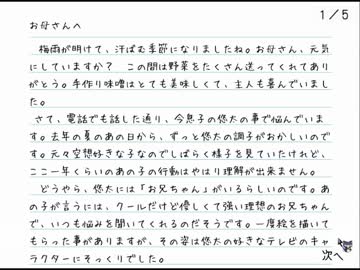 1/5
お母さんへ
梅雨が明けて、汗ばむ季節になりましたね。お母さん、元気
にしていますか？　この間は野菜をたくさん送ってくれてあり
がとう。手作り味噌はとても美味しくて、主人も喜んでいまし
た。
さて、電話でも話した通り、今息子の悠太の事で悩んでいま
す。去年の夏のあの日から、ずっと悠太の調子がおかしいので
す。元々空想好きな子なのでしばらく様子を見ていたけれど、
ここ一年くらいのあの子の行動はやはり理解が出来ません。
どうやら、悠太には「お兄ちゃん」がいるらしいのです。あ
の子が言うには、クールだけど優しくて強い理想のお兄ちゃん
で、いつも悩みを聞いてくれるのだそうです。一度絵を描いて
もらった事がありますが、その姿は悠太の好きなテレビのキャ
ラクターにそっくりでした。
次へ